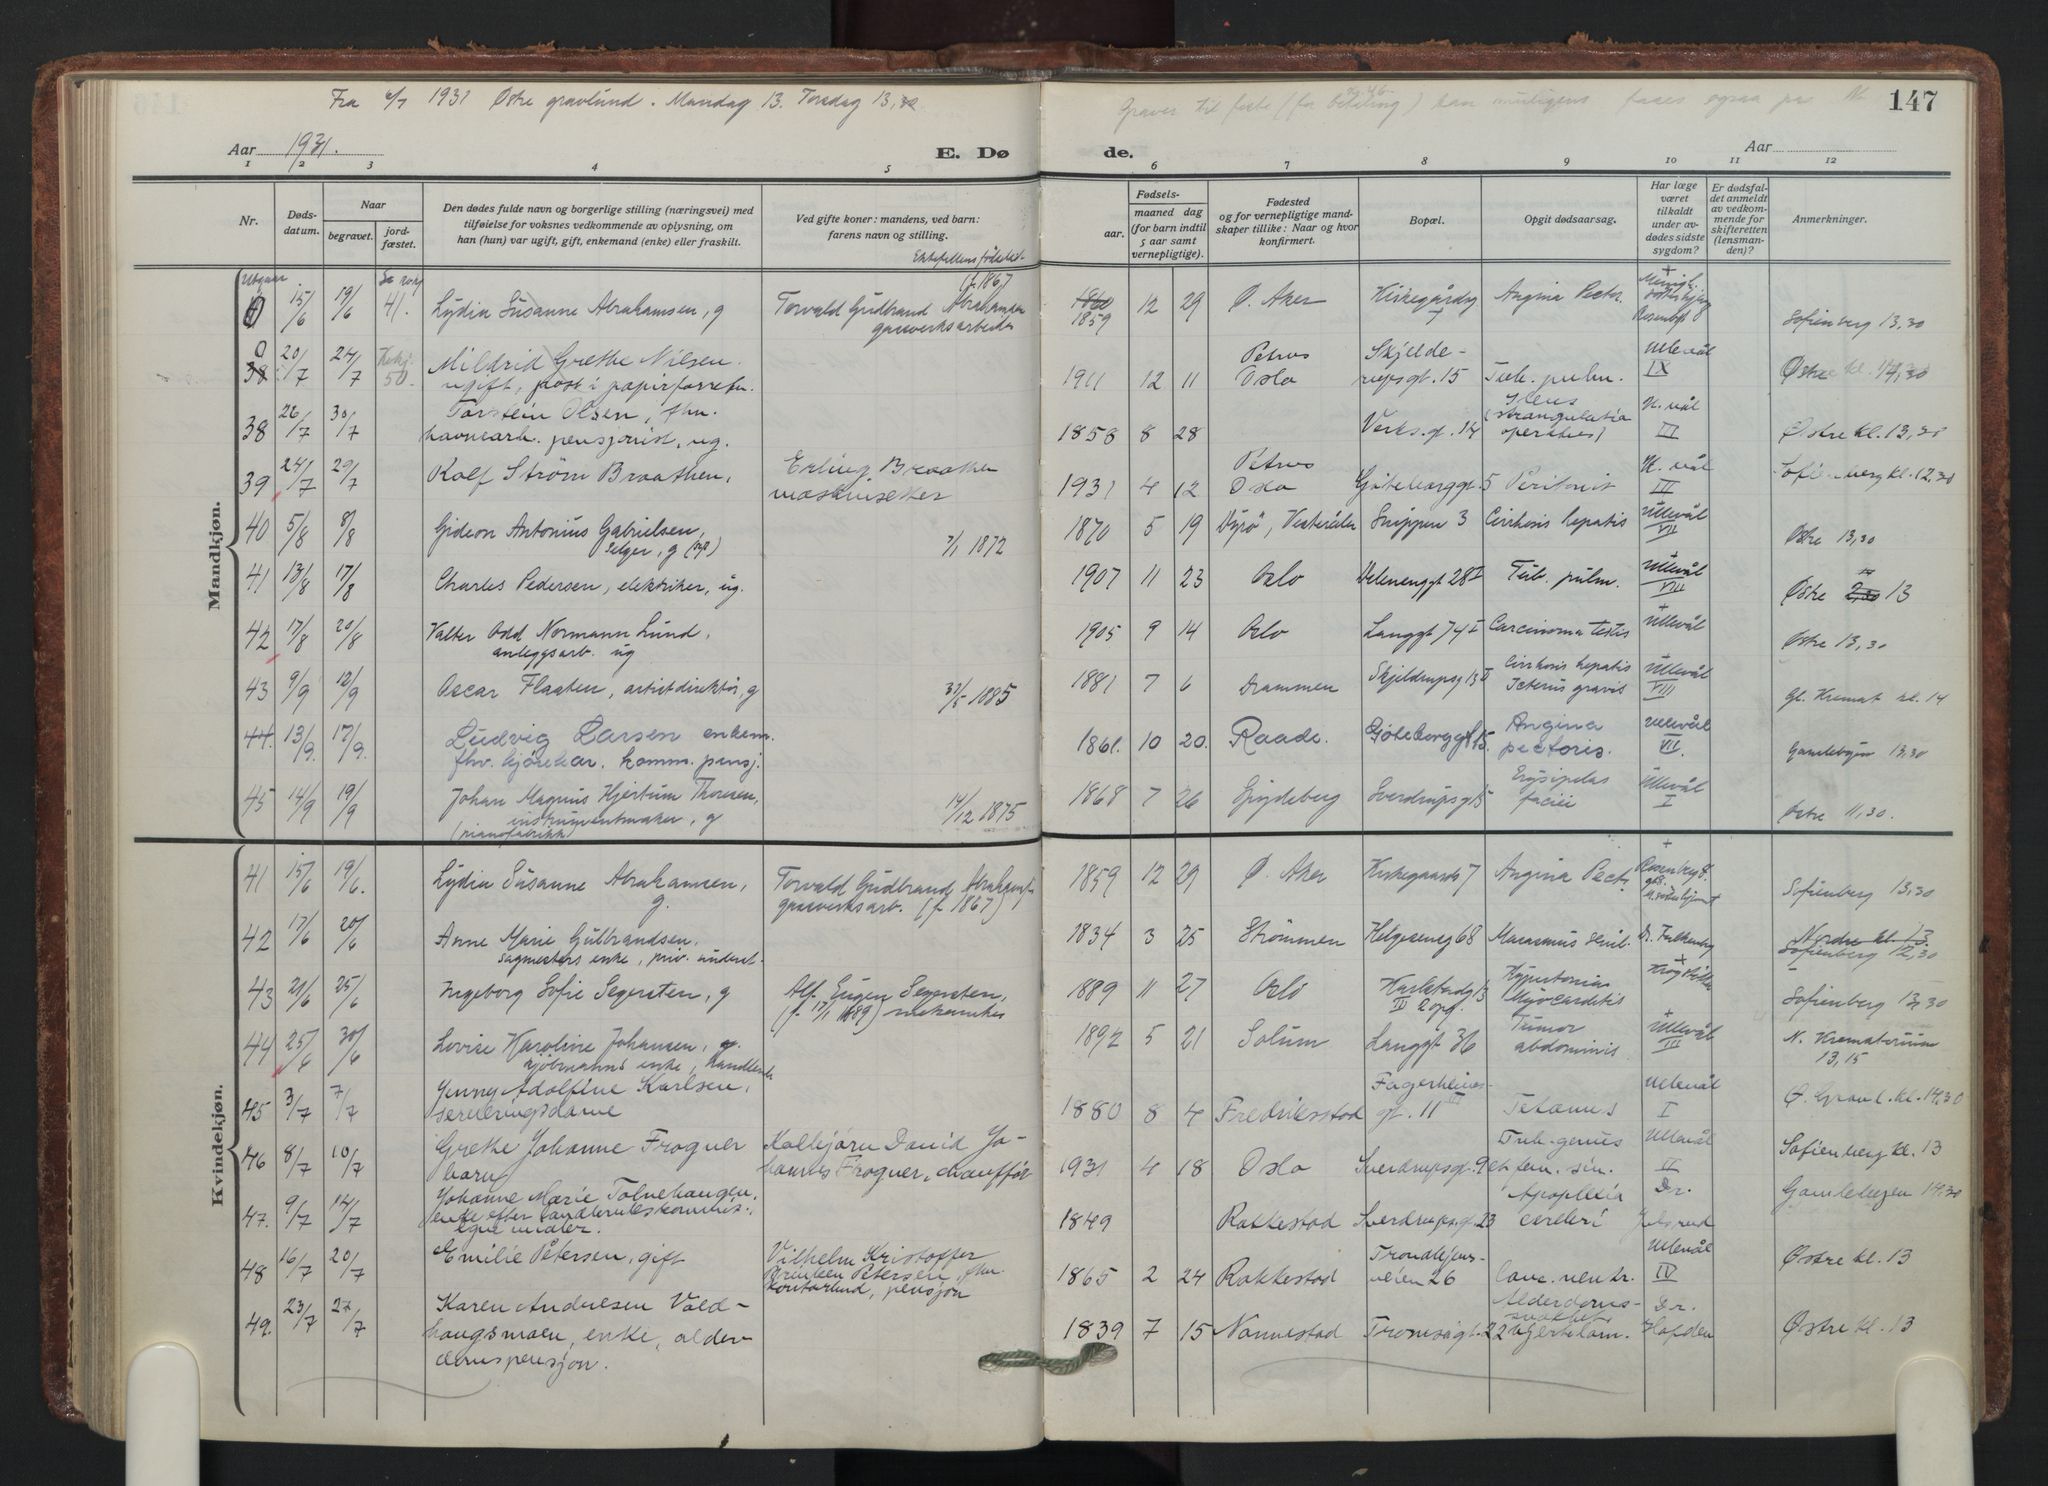 Fra 1931 Østre gravlund. Mandag 13. Torsdag 13,30
Graver til feste (for betaling) kan muligens faaes ogsaa paa
147
Aar 1931.
E. Dø
de.
Aar
1 2 3 4 5 6 7 8 9 10 11 12
Nr.
Døds-
datum.
Naar
begravet.
jord-
fæstet.
Den dødes fulde navn og borgerlige stilling (næringsvei) med
tilføielse for voksnes vedkommende av oplysning, om
han (hun) var ugift, gift, enkemand (enke) eller fraskilt.
Ved gifte koner: mandens, ved barn:
farens navn og stilling.
aar.
Fødsels-
maaned dag
(for barn indtil
5 aar samt
vernepligtige).
Fødested
og for vernepligtige mand-
skaper tillike: Naar og hvor
konfirmert.
Bopæl.
Opgit dødsaarsag.
Har læge
været
tilkaldt
under av-
dødes sidste
sygdom?
Er dødsfal-
det anmeldt
av vedkom-
mende for
skifteretten
(lensman-
den)?
Anmerkninger.
Mandkjøn.
Utgaar
15/6 19/6 41. Lydia Susanne Abrahamsen, g
(f. 1867)
Torvald Gudbrand Abrahamsen
gasverksarbeider
1860
1859 12 29 Ø. Aker Kirkegårdsg 7 Angina Pector.
Sofienberg 13,30
38 20/7 24/7 50. Mildrid Grethe Nielsen
ugift, post i papirforretn.
1911 12 11 Petrus Oslo Skjelde-
rupsgt. 15 Tub. pulm. Ullevål IX Østre kl. 14,30
38 26/7 30/7 Torstein Olsen, fhv.
havnearb. pensjonist, ug.
1858 8 28 Verksgt. 14 Ileus
(strangulatio
operatus) U. vål III Østre kl. 13,30
39 24/7 29/7 Rolf Strøm Braathen, Erling Braathen
maskinsetter
1931 4 12 Petrus Oslo Gøteborggt. 5 Peritonit U. vål III Sofienberg kl. 12,30
40 5/8 8/8 Gideon Antonius Gabrielsen,
Selger, g
7/1 1872 1870 5 19 Dyrö, Vesterålen Snippen 3 Cirrhosis hepatis Ullevål VII Østre 13,30
41 13/8 17/8 Charles Pedersen, elektriker, ug.
1907 11 23 Oslo Delenenggt 28 I Tub. pulm. Ullevål VIII Østre 13
42 17/8 20/8 Valter Odd Normann Lund,
anleggsarb. ug
1905 9 14 Oslo Langgt 74 I Carcinoma testis Ullevål Østre 13,30
43 9/9 12/9 Oscar Flaaten, artistdirektör, g
1885 1881 7 6 Drammen Skjeldrupsg 13 II Cirrhosis hepatis
Icterus gravis Ullevål VIII Gl. Kremat kl. 14
44. 13/9. 17/9. Ludvig Larsen enkem.
fhv. kjørekar. komm. pensj.
1861. 10 20. Raade. Göteborggt 15. Angina
pectoris. Ullevål VII. Gamlebyen 13,30
45 14/9 19/9 Johan Magnus Hjertum Thoresen,
instrumentmaker, g
(pianofabrikk)
14/12 1875 1868 7 26 Spydeberg Sverdrupsg 15 Erysipelas
faciei Ullevål I Østre 11,30.
Kvindekjøn.
41 15/6 19/6. Lydia Susanne Abrahamsen,
g.
Torvald Gudbrand Abrahamsen
gasverksarb. (f. 1867)
1859 12 29 Ø. Aker Kirkegaardsg 7 Angina Pect. Sofienberg 13,30
42 17/6 20/6 Anne Marie Gulbrandsen,
sagmesters enke, priv. underst.
1834 3 25 Strömmen Helgesensg 68 Marasmus senil. Dr. Falkenberg
Nordre kl. 13
Sofienberg 12,30
43 21/6 25/6 Ingeborg Sofie Segersten, g Alf Eugen Segersten,
(f. 17/1 1889) mekaniker
1889 11 27 Oslo Karlstadsg 13
IV Hypertonia
Myocarditis Krogstötten Sofienberg 13,30
44 25/6 30/6 Lovise Karoline Johansen,
kjöbmanns enke, handlende
1892 5 21 Solum Langgt 36 Tumor
abdominis Ullevål III N. Krematorium
13,15
45 3/7 7/7 Jenny Adolfine Karlsen,
serveringsdame
1880 8 4 Fredriksstad Fagerheims-
gt. 11 III Tetanus Ullevål I Ø. Gravl. kl. 14,30
46 8/7 10/7 Grethe Johanne Frogner
barn
Kolbjørn David Jo-
hannes Frogner, chauffør
1931 4 18 Oslo Sverdrupsgt. 9 Tub. genus
et fem. sin. Ullevål II Sofienberg kl. 13
47. 9/7 14/7 Johanne Marie Tolvehaugen,
enke efter landbrukskommis.,
egne midler.
1849 Rakkestad Sverdrupsgt. 23 Apoplexia
cerebri Dr. Gamlebyen 14.30
48 16/7 20/7 Emilie Petersen, gift Vilhelm Kristoffer
Petersen, fhv.
kontorbud, pensjon
1865 2 24 Rakkestad Trondhjems-
veien 26 Canc. ventr. Ullevål IV Østre kl. 13
49. 23/7 27/7 Karen Andresen Vold-
haugsmoen, enke, alder-
domspensjon.
1839 7 15 Nannestad Tromsøgt. 22 Alderdoms-
svakhet
Hjertelam. Dr. Østre kl. 13